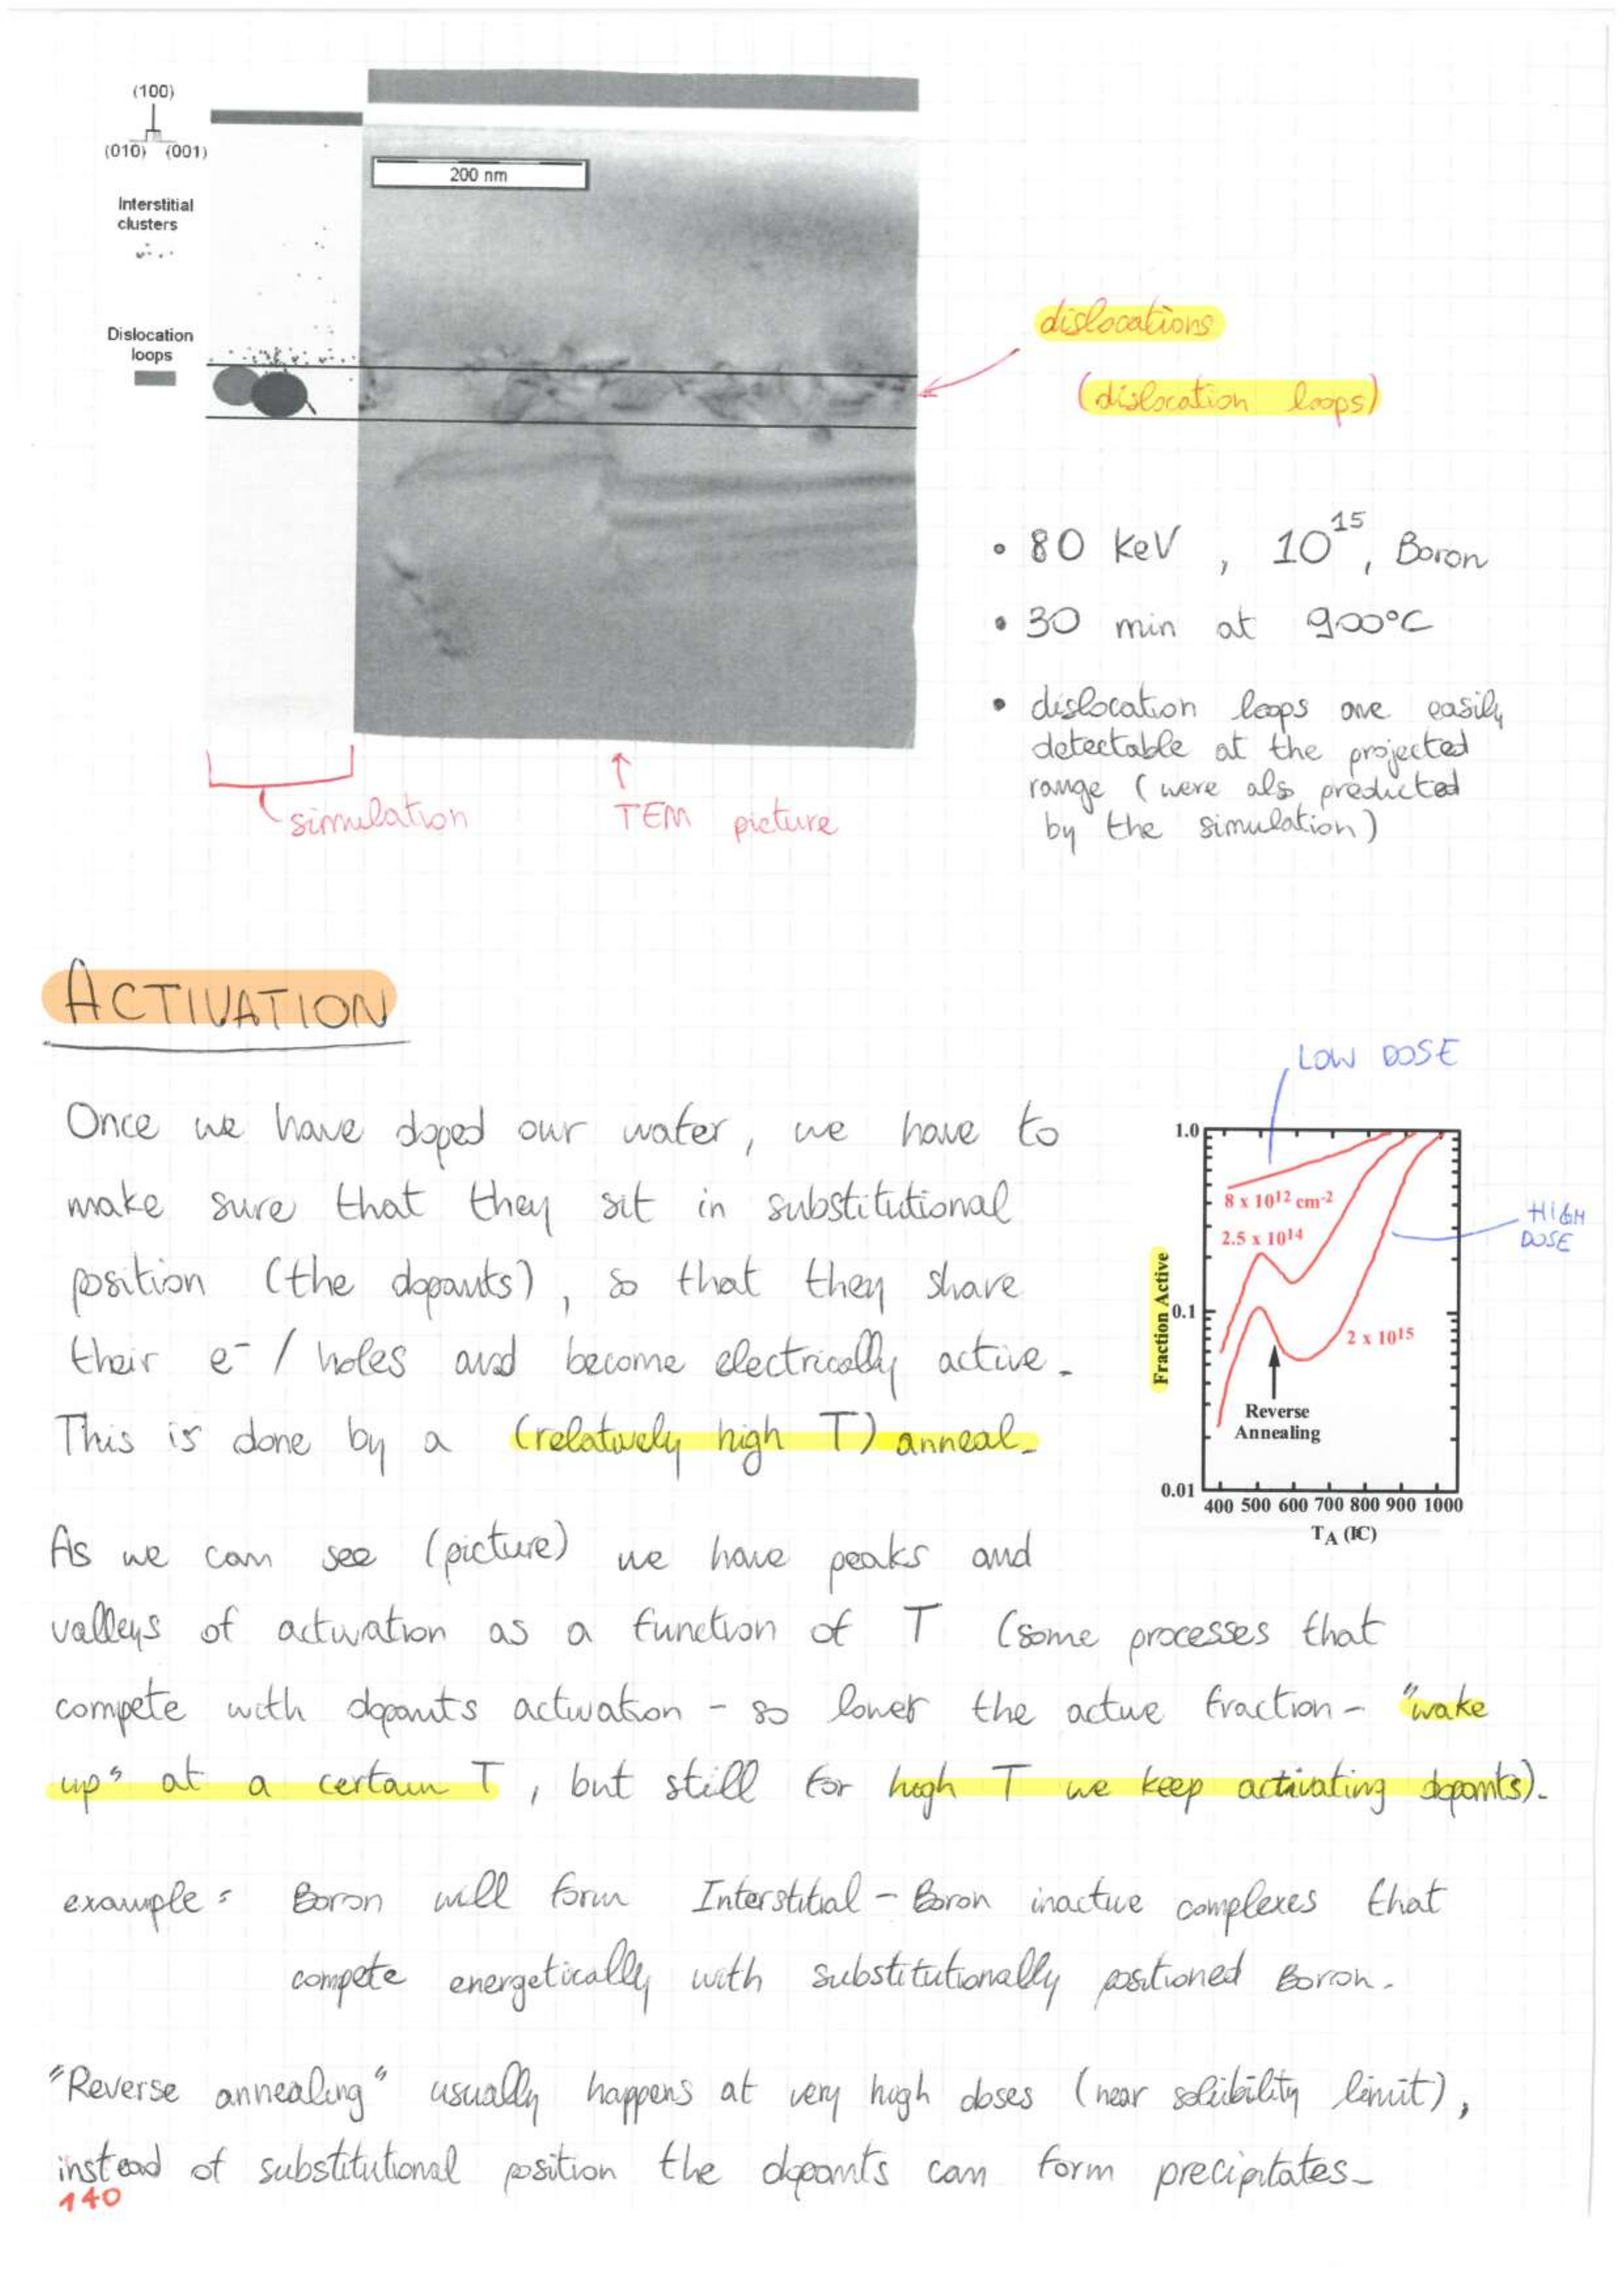 (100)
(010) (001)
200 nm
Interstitial
clusters
Dislocation
loops
dislocations
(dislocation loops)
• 80 keV , 10^15, Boron
• 30 min at 900°C
• dislocation loops are easily
detectable at the projected
range (were also predicted
by the simulation)
simulation
TEM picture
ACTIVATION
Once we have doped our water, we have to
make sure that they sit in substitutional
position (the dopants), so that they share
their e- / holes and become electrically active.
This is done by a (relatively high T) anneal.
LOW DOSE
HIGH
DOSE
1.0
8 x 10^12 cm^-2
2.5 x 10^14
Fraction Active
0.1
2 x 10^15
Reverse
Annealing
0.01
400 500 600 700 800 900 1000
TA (lC)
As we can see (picture) we have peaks and
valleys of activation as a function of T (some processes that
compete with dopants activation - so lower the active fraction - "wake
up" at a certain T, but still for high T we keep activating dopants).
example: Boron will form Interstitial - Boron inactive complexes that
compete energetically with substitutionally positioned Boron.
"Reverse annealing" usually happens at very high doses (near solubility limit),
instead of substitutional position the dopants can form precipitates.
140